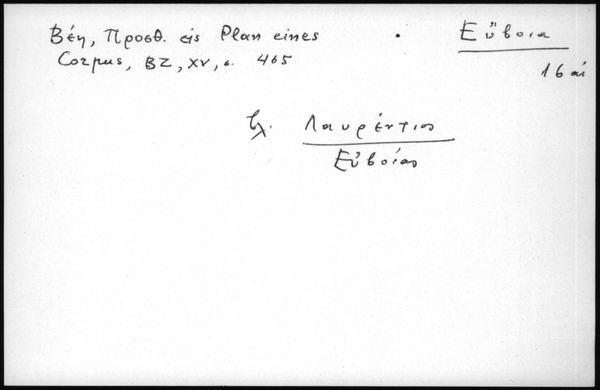 Βέη, Προσθ. εἰς Plan eines
Corpus, BZ, XV, σ. 465
Εὔβοια
16 αἰ
βλ. Λαυρέντιος
Εὐβοίας